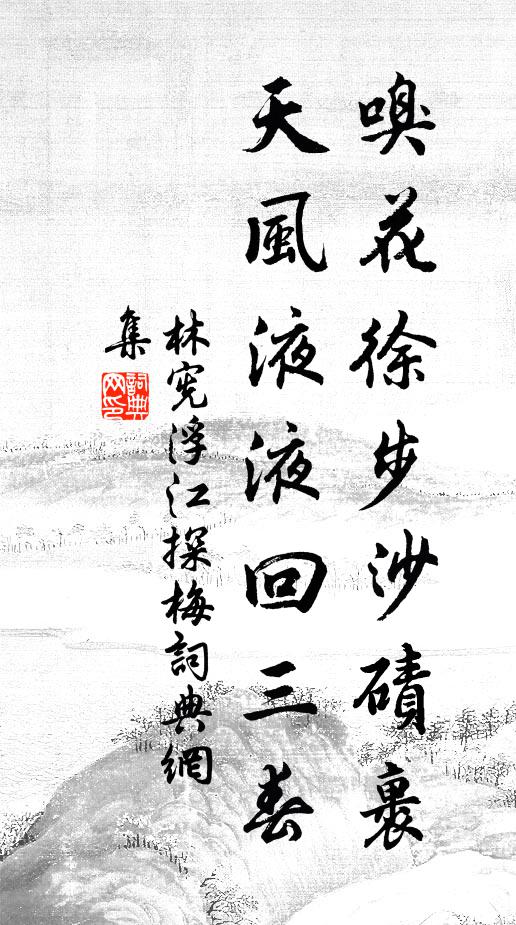 嗅花徐步沙磧裏
天風液液回三春
林憲浮江探梅詞典網
集
詞典網印